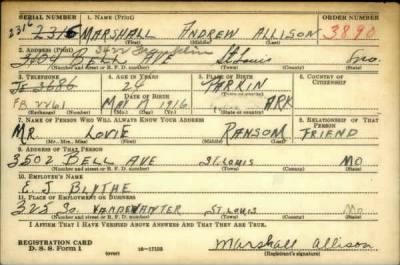 SERIAL NUMBER 1. NAME (Print) ORDER NUMBER
231 2316 MARSHALL ANDREW ALLISON 3890
(First) (Middle) (Last)
2. ADDRESS (Print) 3422 Franklin
3404 BELL AVE St Louis Mo.
(Number and street or R. F. D. number) (Town) (County) (State)
3. TELEPHONE 4. AGE IN YEARS 5. PLACE OF BIRTH 6. COUNTRY OF CITIZENSHIP
JE 3686 24 PARKIN
DATE OF BIRTH (Town or county)
FB 2261 MAY 17 1916 ARK
(Exchange) (Number) (Mo.) (Day) (Yr.) (State or country)
7. NAME OF PERSON WHO WILL ALWAYS KNOW YOUR ADDRESS 8. RELATIONSHIP OF THAT PERSON
MR. LOVIE RANSOM FRIEND
(Mr., Mrs., Miss) (First) (Middle) (Last)
9. ADDRESS OF THAT PERSON
3502 BELL AVE ST. LOUIS MO
(Number and street or R. F. D. number) (Town) (County) (State)
10. EMPLOYER'S NAME
E. J BLYTHE
11. PLACE OF EMPLOYMENT OR BUSINESS
325 So. VANDEVANTER ST. LOUIS MO
(Number and street or R. F. D. number) (Town) (County) (State)
I AFFIRM THAT I HAVE VERIFIED ABOVE ANSWERS AND THAT THEY ARE TRUE.
REGISTRATION CARD
D. S. S. Form 1 (over) 16-17105 Marshall Allison
(Registrant's signature)